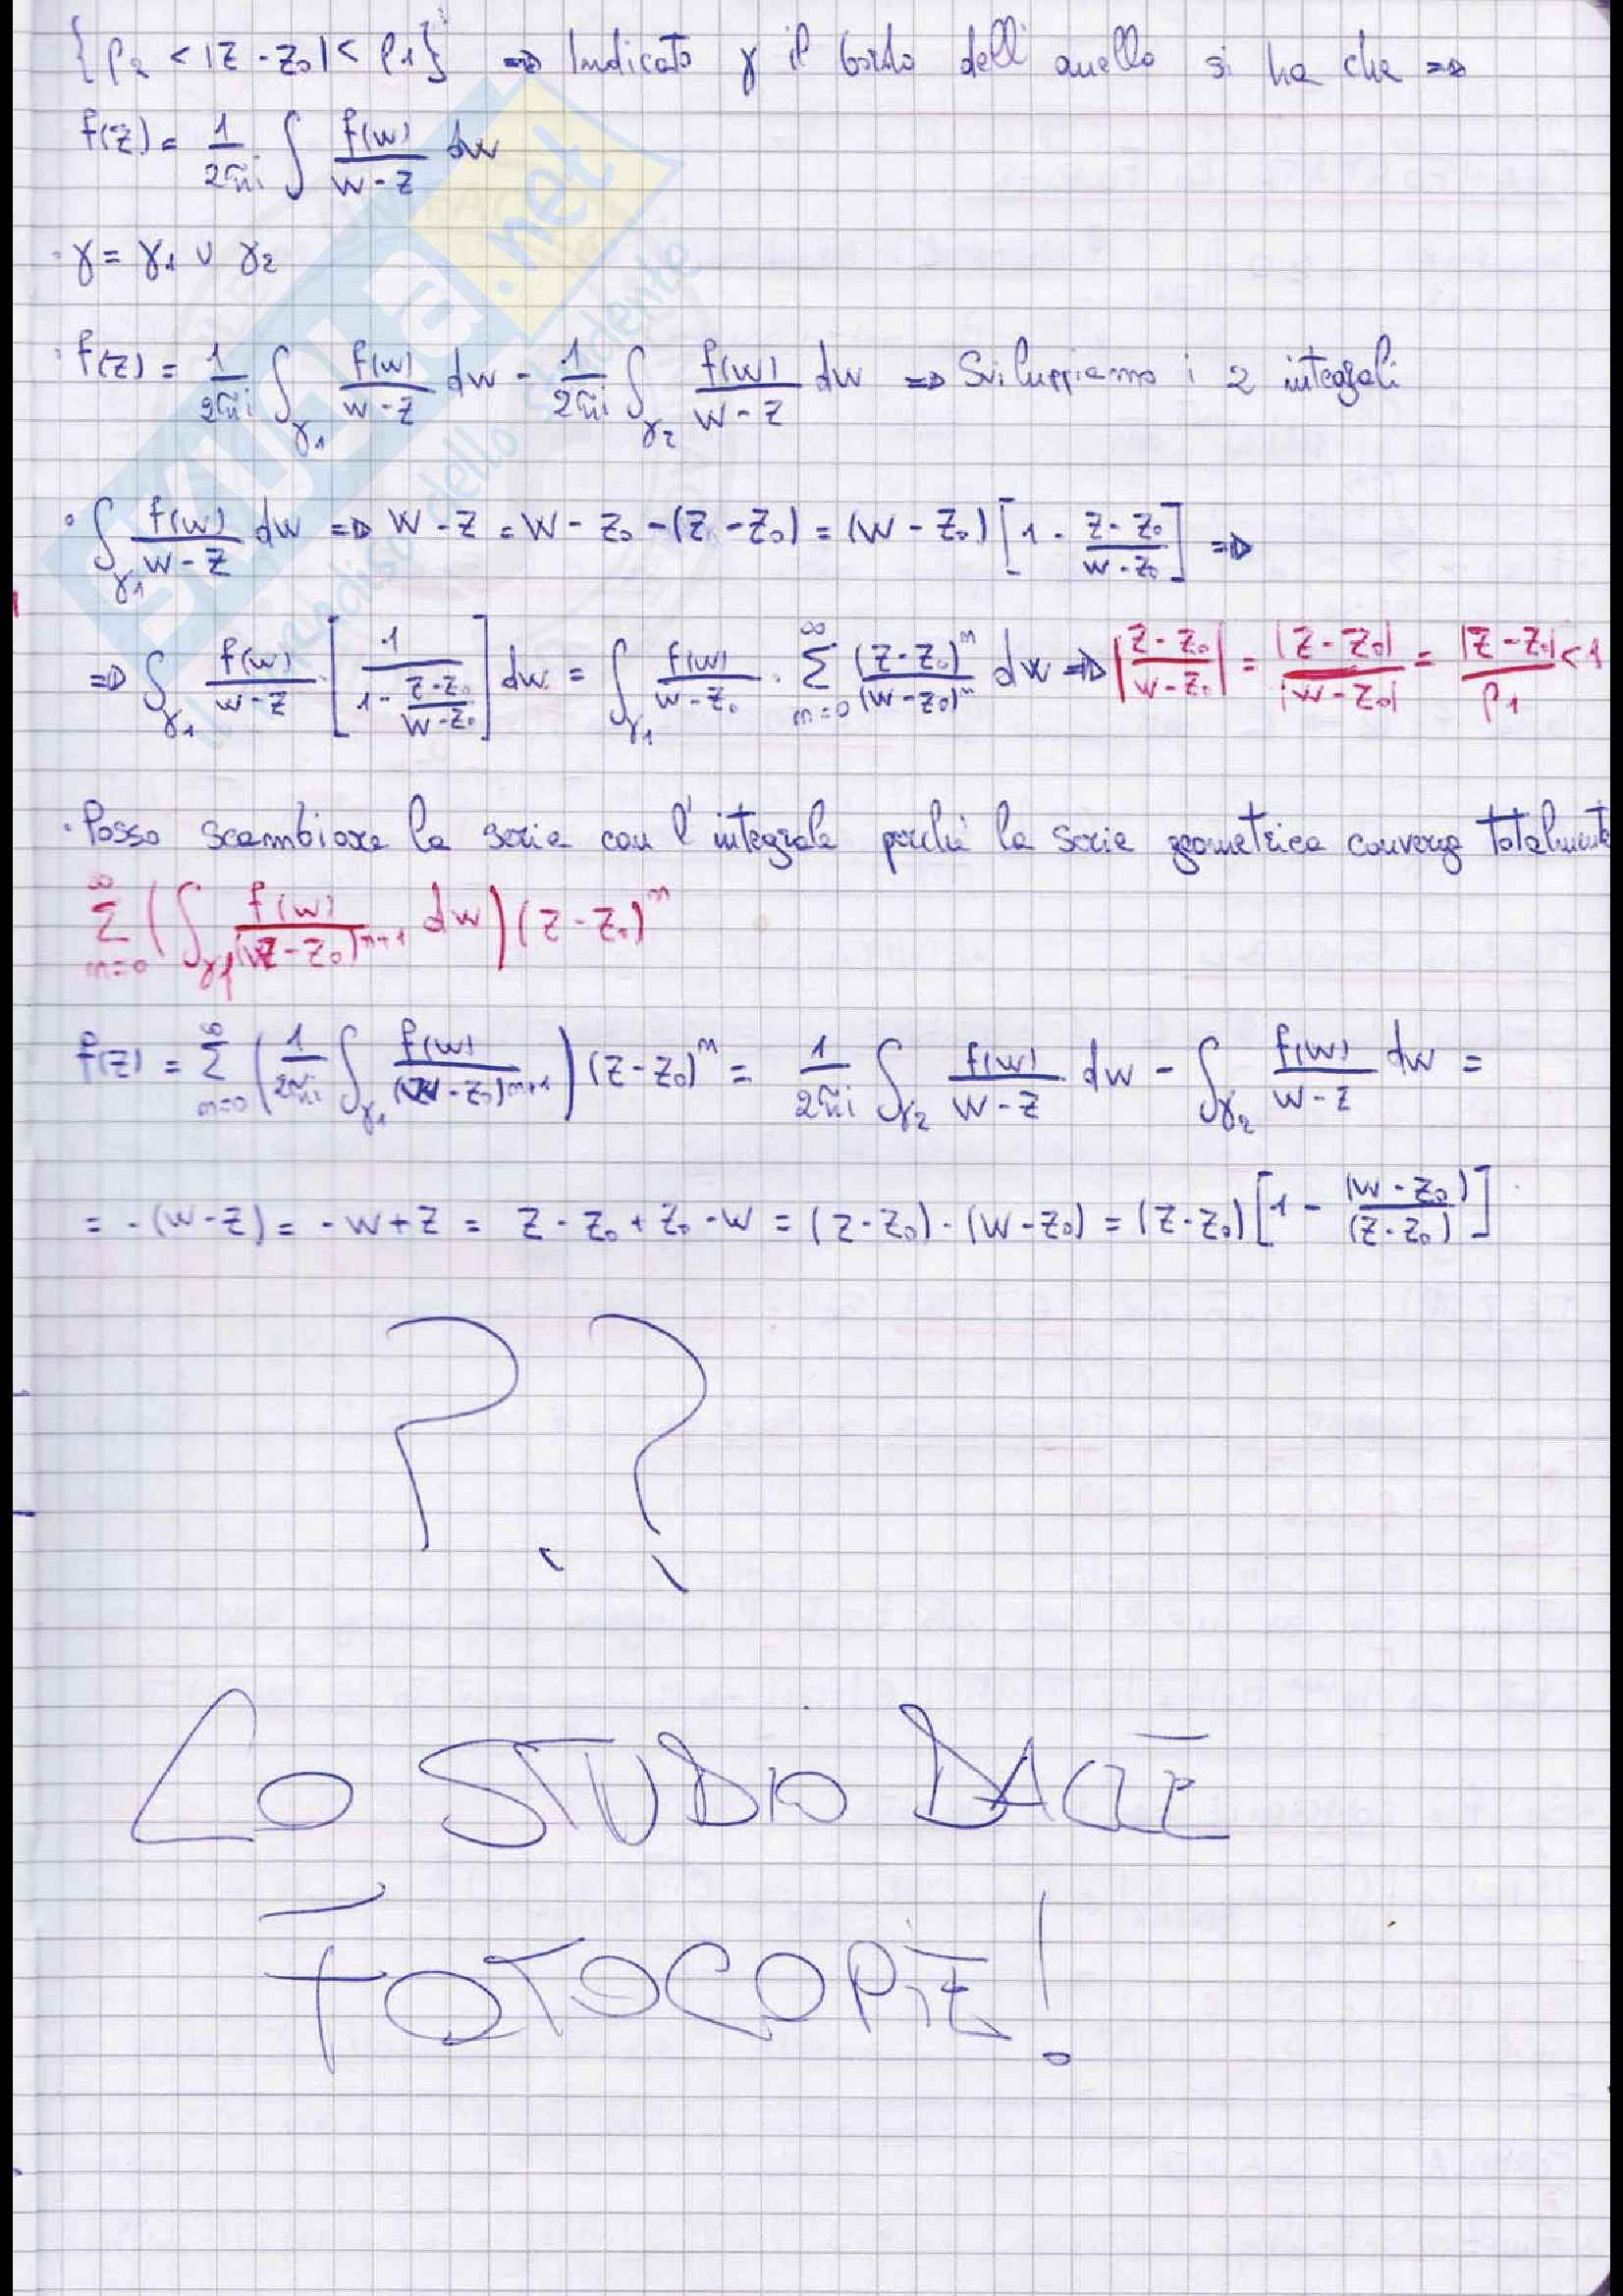 {ρ2 < |z - z0| < ρ1} => Indicato γ il bordo dell'anello si ha che =>
f(z) = 1/2πi ∫ f(w)/(w-z) dw
· γ = γ1 ∪ γ2
· f(z) = 1/2πi ∫γ1 f(w)/(w-z) dw - 1/2πi ∫γ2 f(w)/(w-z) dw => Sviluppiamo i 2 integrali
· ∫γ1 f(w)/(w-z) dw => w-z = w-z0-(z-z0) = (w-z0)[1 - (z-z0)/(w-z0)] =>
=> ∫γ1 f(w)/(w-z) · [1/(1 - (z-z0)/(w-z0))] dw = ∫γ1 f(w)/(w-z0) · Σ n=0 ∞ (z-z0)^n/(w-z0)^n dw => |(z-z0)/(w-z0)| = |z-z0|/|w-z0| = |z-z0|/ρ1 < 1
· Posso scambiare la serie con l'integrale perché la serie geometrica converge totalmente
Σ n=0 ∞ (∫γ1 f(w)/(w-z0)^n+1 dw)(z-z0)^n
f(z) = Σ n=0 ∞ (1/2πi ∫γ1 f(w)/(w-z0)^n+1)(z-z0)^n = 1/2πi ∫γ2 f(w)/(w-z) dw - ∫γ2 f(w)/(w-z) dw =
= -(w-z) = -w+z = z-z0+z0-w = (z-z0)-(w-z0) = (z-z0)[1 - (w-z0)/(z-z0)]
??
LO STUDIO DALLE
FOTOCOPIE!
SKUOLA.net
il paradiso dello studente